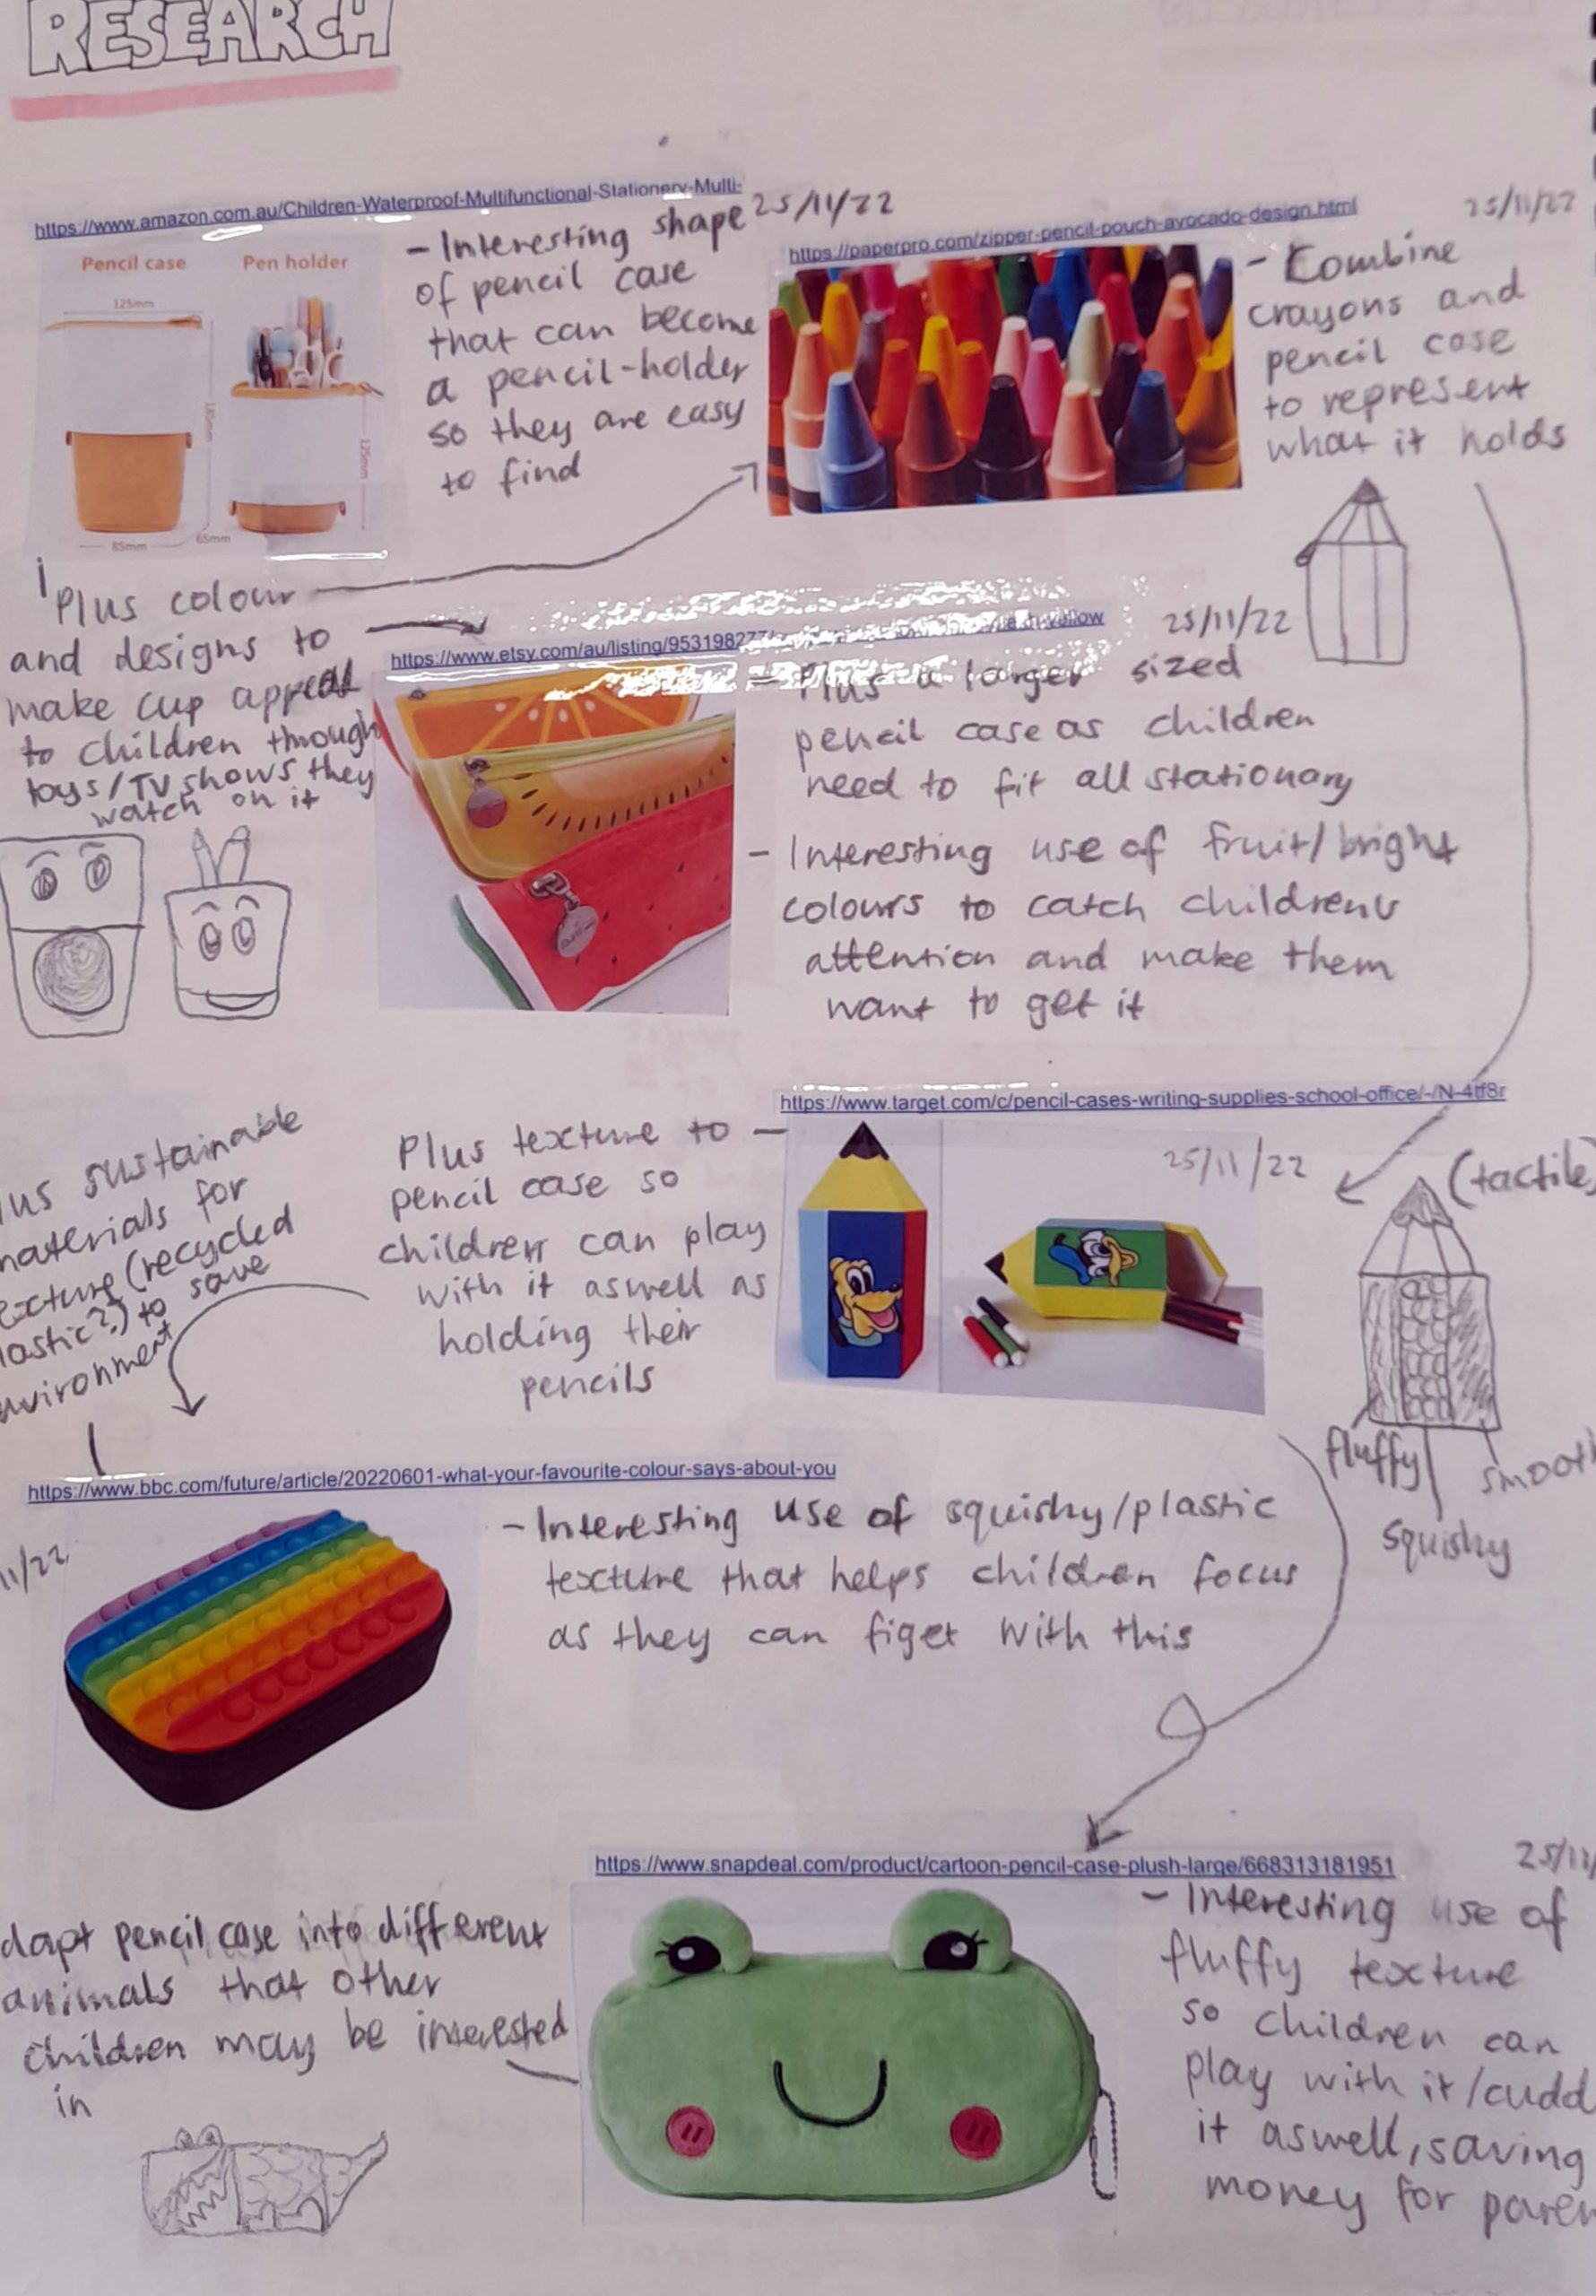 RESEARCH
https://www.amazon.com.au/Children-Waterproof-Multifunctional-Stationery-Multi-
25/11/22
Pencil case
Pen holder
125mm
185mm
125mm
85mm
65mm
- Interesting shape
of pencil case
that can become
a pencil-holder
so they are easy
to find
https://paperpro.com/zipper-pencil-pouch-avocado-design.html
25/11/22
- Combine
crayons and
pencil case
to represent
what it holds
Plus colour
and designs to
make cup appeal
to children through
toys/TV shows they
watch on it
https://www.etsy.com/au/listing/953198277
25/11/22
- Plus a larger sized
pencil case as children
need to fit all stationary
- Interesting use of fruit/bright
colours to catch childrens
attention and make them
want to get it
https://www.target.com/c/pencil-cases-writing-supplies-school-office/-/N-4tf8r
25/11/22
lus sustainable
materials for
exture (recycled
lastic??) to save
nvironment
Plus texture to -
pencil case so
children can play
with it aswell as
holding their
pencils
(tactile)
fluffy
smooth
squishy
https://www.bbc.com/future/article/20220601-what-your-favourite-colour-says-about-you
11/22
- Interesting use of squishy/plastic
texture that helps children focus
as they can figet with this
https://www.snapdeal.com/product/cartoon-pencil-case-plush-large/668313181951
25/11/
dapt pencil case into different
animals that other
children may be interested
in
- Interesting use of
fluffy texture
so children can
play with it/cudd
it aswell, saving
money for paren